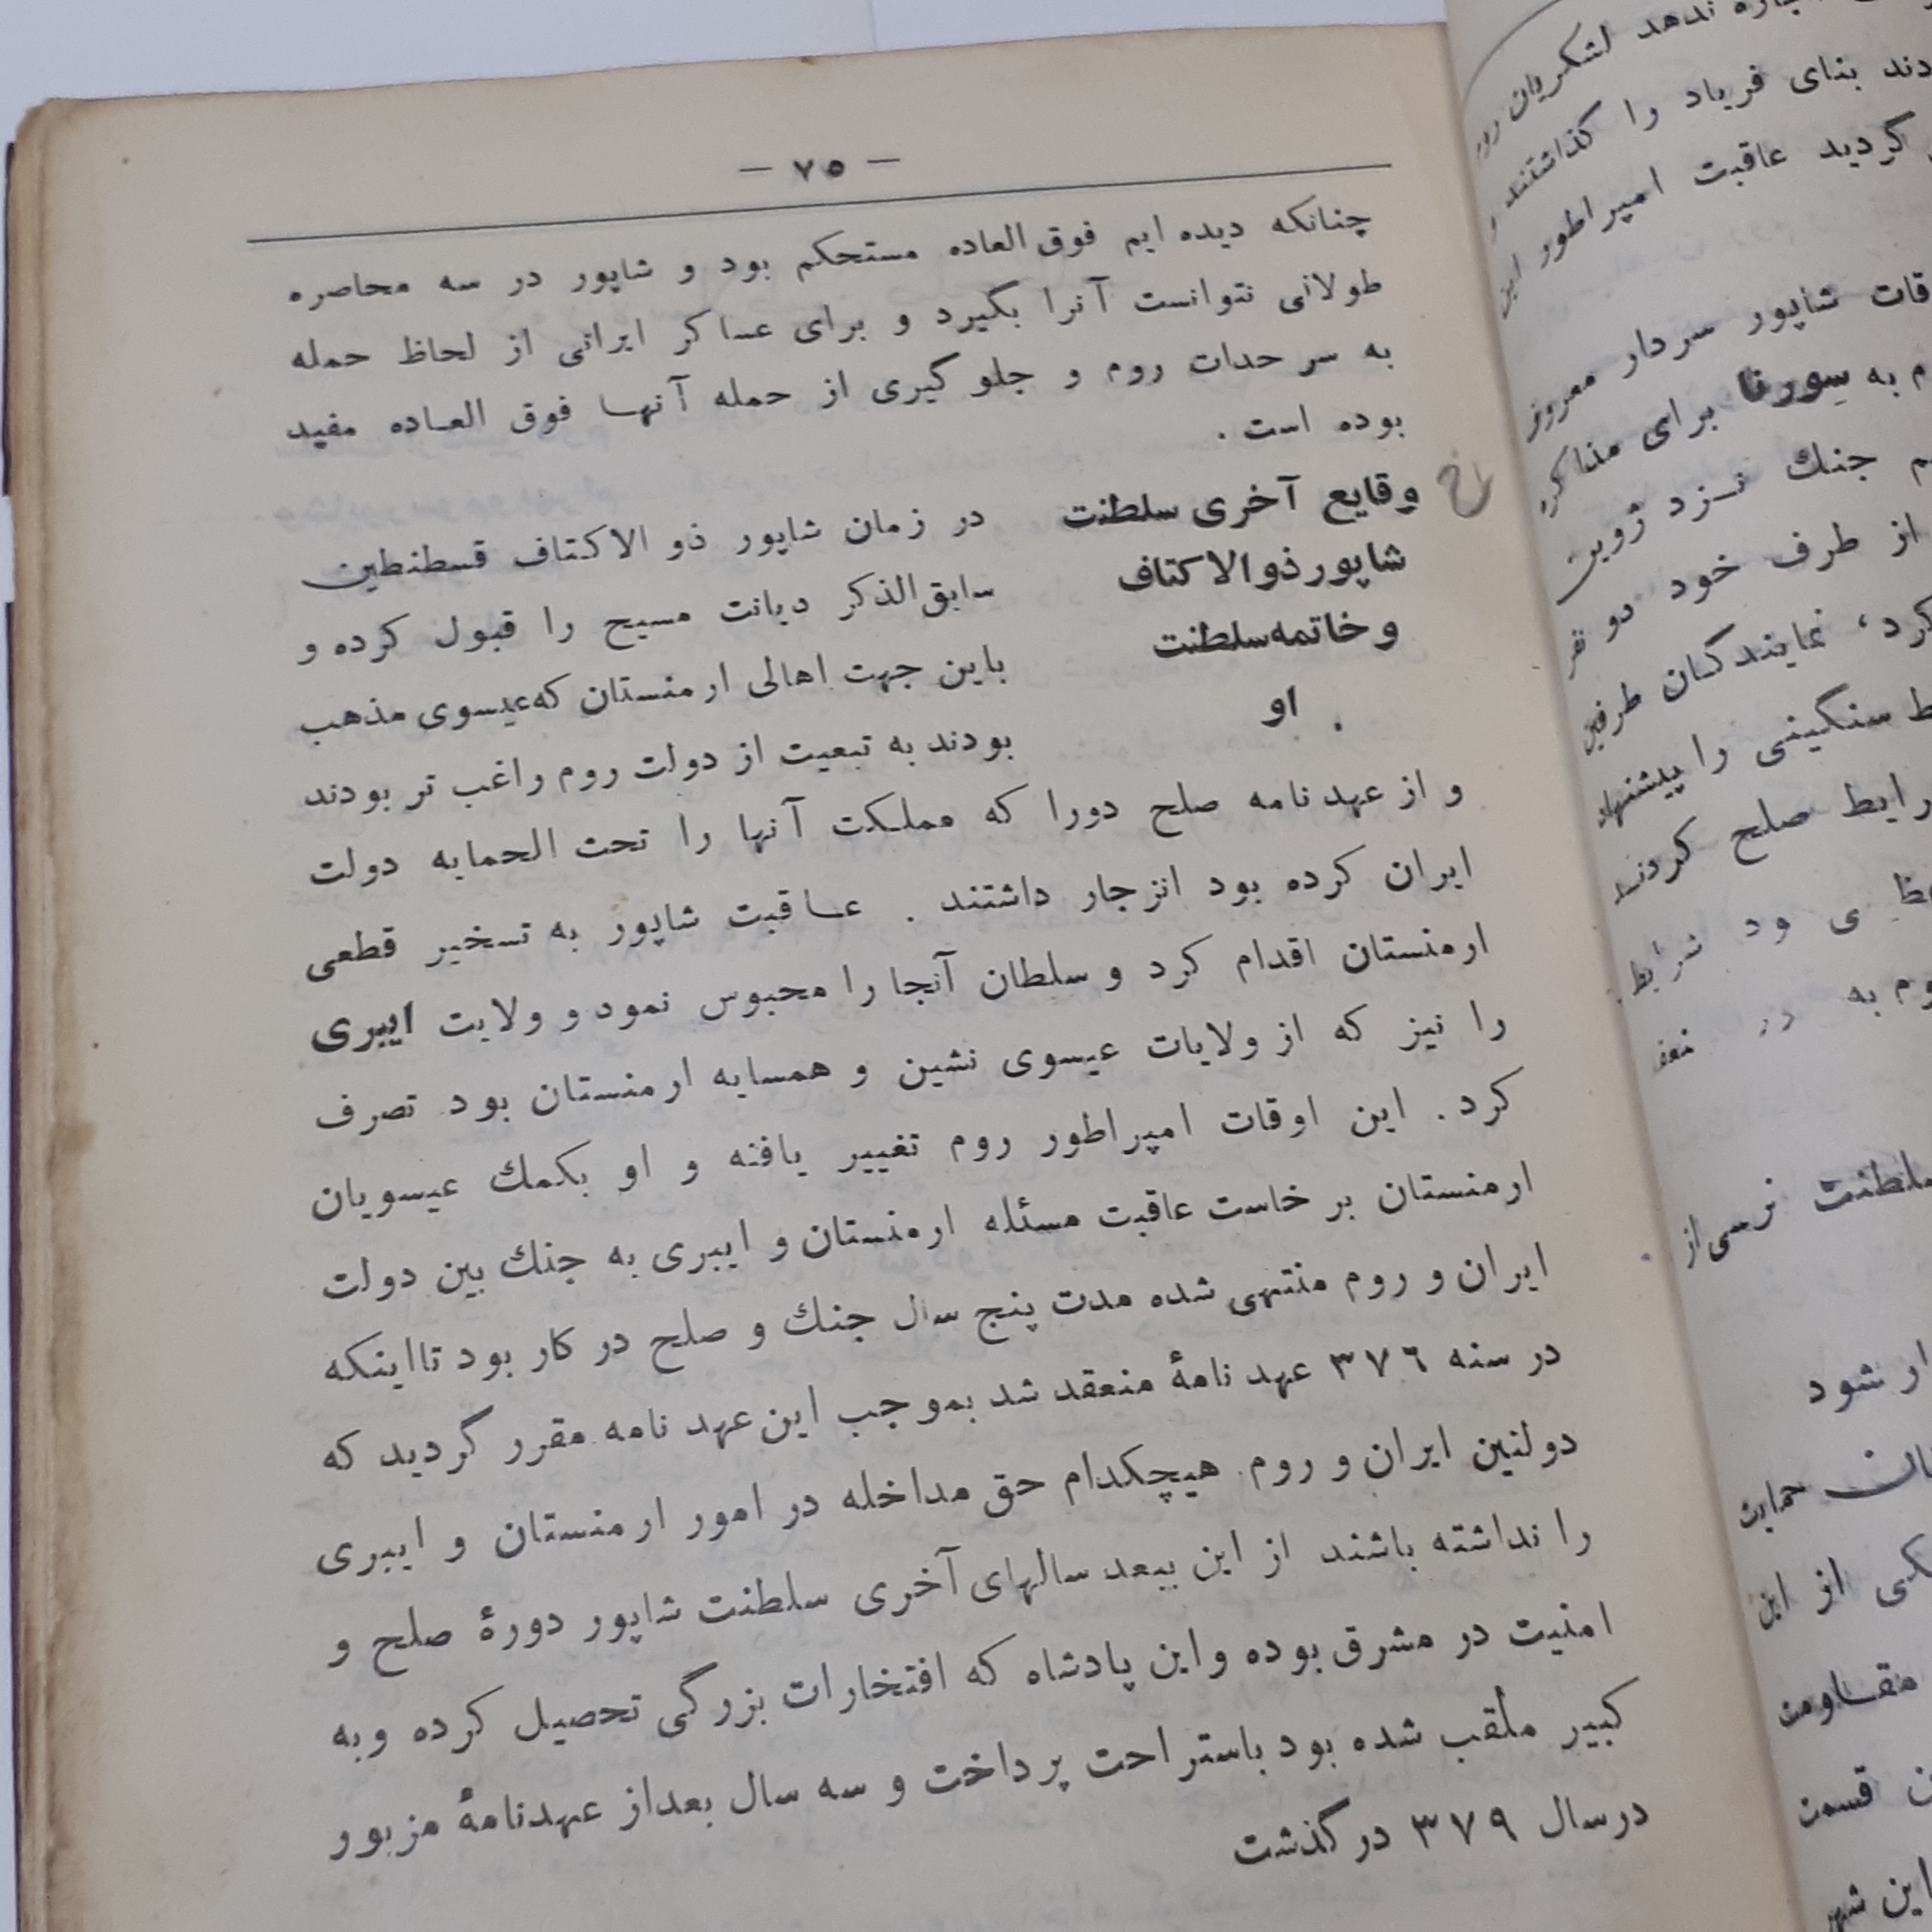 — ۷۵ —
چنانکه دیده ایم فوق العاده مستحکم بود و شاپور در سه محاصره
طولانی نتوانست آنرا بگیرد و برای عساکر ایرانی از لحاظ حمله
به سر حدات روم و جلو گیری از حمله آنها فوق العاده مفید
بوده است .
وقایع آخری سلطنت
شاپور ذو الاکتاف
و خاتمه سلطنت
او .
در زمان شاپور ذو الاکتاف قسطنطین
سابق الذکر دیانت مسیح را قبول کرده و
باین جهت اهالی ارمنستان که عیسوی مذهب
بودند به تبعیت از دولت روم راغب تر بودند
و از عهد نامه صلح دورا که مملکت آنها را تحت الحمایه دولت
ایران کرده بود انزجار داشتند . عاقبت شاپور به تسخیر قطعی
ارمنستان اقدام کرد و سلطان آنجا را محبوس نمود و ولایت ایبری
را نیز که از ولایات عیسوی نشین و همسایه ارمنستان بود تصرف
کرد . این اوقات امپراطور روم تغییر یافته و او بکمك عیسویان
ارمنستان بر خاست عاقبت مسئله ارمنستان و ایبری به جنك بین دولت
ایران و روم منتهی شده مدت پنج سال جنك و صلح در کار بود تا اینکه
در سنه ۳۷٦ عهد نامهٔ منعقد شد بموجب این عهد نامه مقرر گردید که
دولتین ایران و روم هیچکدام حق مداخله در امور ارمنستان و ایبری
را نداشته باشند از این ببعد سالهای آخری سلطنت شاپور دورهٔ صلح و
امنیت در مشرق بوده و این پادشاه که افتخارات بزرگی تحصیل کرده و به
کبیر ملقب شده بود باستراحت پرداخت و سه سال بعد از عهدنامهٔ مزبور
در سال ۳۷۹ در گذشت
ندهد لشکریان
بنای فریاد را گذاشتند
گردید عاقبت امپراطور
شاپور سردار
به سورنا برای
جنك نزد ژوین
از طرف خود دو نفر
نمایندگان طرفین
سنگینی را پیشنهاد
صلح کردند
شرایط
به
نرسی از
شود
حمایت
از این
مقاومت
قسمت
این شهر